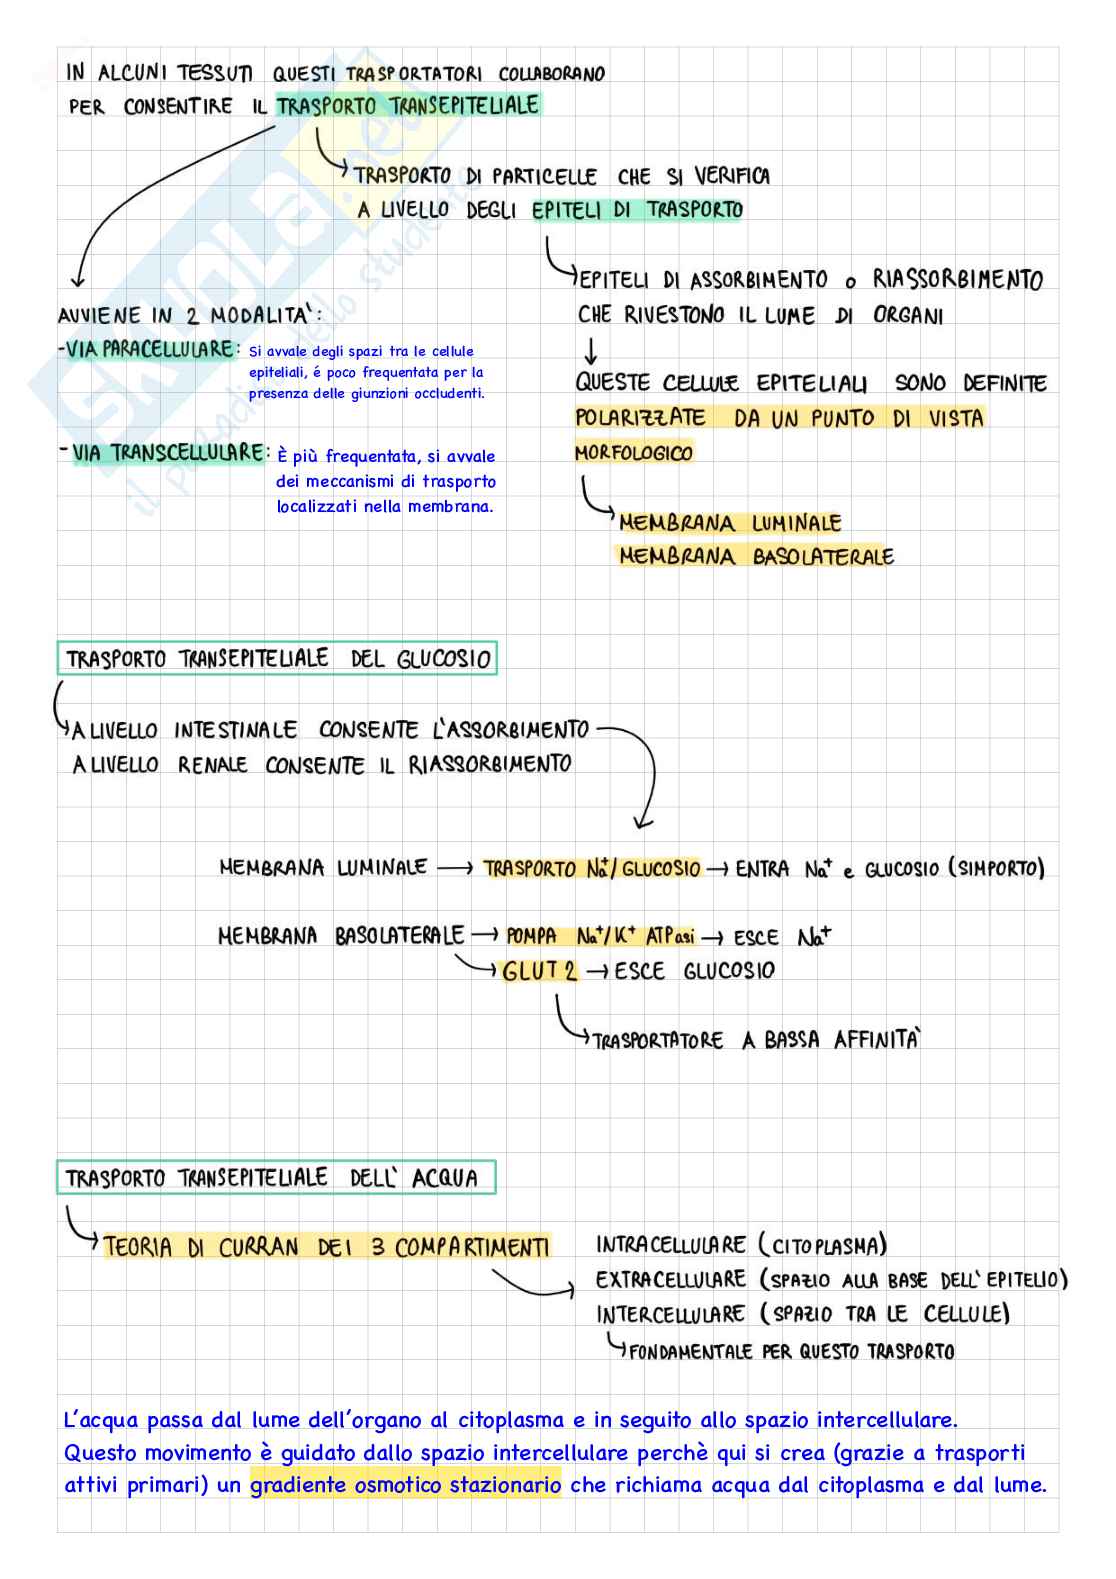 IN ALCUNI TESSUTI QUESTI TRASPORTATORI COLLABORANO
PER CONSENTIRE IL TRASPORTO TRANSEPITELIALE
TRASPORTO DI PARTICELLE CHE SI VERIFICA
A LIVELLO DEGLI EPITELI DI TRASPORTO
EPITELI DI ASSORBIMENTO O RIASSORBIMENTO
CHE RIVESTONO IL LUME DI ORGANI
QUESTE CELLULE EPITELIALI SONO DEFINITE
POLARIZZATE DA UN PUNTO DI VISTA
MORFOLOGICO
MEMBRANA LUMINALE
MEMBRANA BASOLATERALE
AVVIENE IN 2 MODALITA':
-VIA PARACELLULARE: Si avvale degli spazi tra le cellule
epiteliali, é poco frequentata per la
presenza delle giunzioni occludenti.
- VIA TRANSCELLULARE: È più frequentata, si avvale
dei meccanismi di trasporto
localizzati nella membrana.
SKUOLA.net
il paradiso dello studente
TRASPORTO TRANSEPITELIALE DEL GLUCOSIO
A LIVELLO INTESTINALE CONSENTE L'ASSORBIMENTO
A LIVELLO RENALE CONSENTE IL RIASSORBIMENTO
MEMBRANA LUMINALE → TRASPORTO Na⁺/GLUCOSIO → ENTRA Na⁺ e GLUCOSIO (SIMPORTO)
MEMBRANA BASOLATERALE → POMPA Na⁺/K⁺ ATPasi → ESCE Na⁺
GLUT 2 → ESCE GLUCOSIO
TRASPORTATORE A BASSA AFFINITA'
TRASPORTO TRANSEPITELIALE DELL' ACQUA
TEORIA DI CURRAN DEI 3 COMPARTIMENTI
INTRACELLULARE (CITOPLASMA)
EXTRACELLULARE (SPAZIO ALLA BASE DELL'EPITELIO)
INTERCELLULARE (SPAZIO TRA LE CELLULE)
FONDAMENTALE PER QUESTO TRASPORTO
L'acqua passa dal lume dell'organo al citoplasma e in seguito allo spazio intercellulare.
Questo movimento è guidato dallo spazio intercellulare perchè qui si crea (grazie a trasporti
attivi primari) un gradiente osmotico stazionario che richiama acqua dal citoplasma e dal lume.